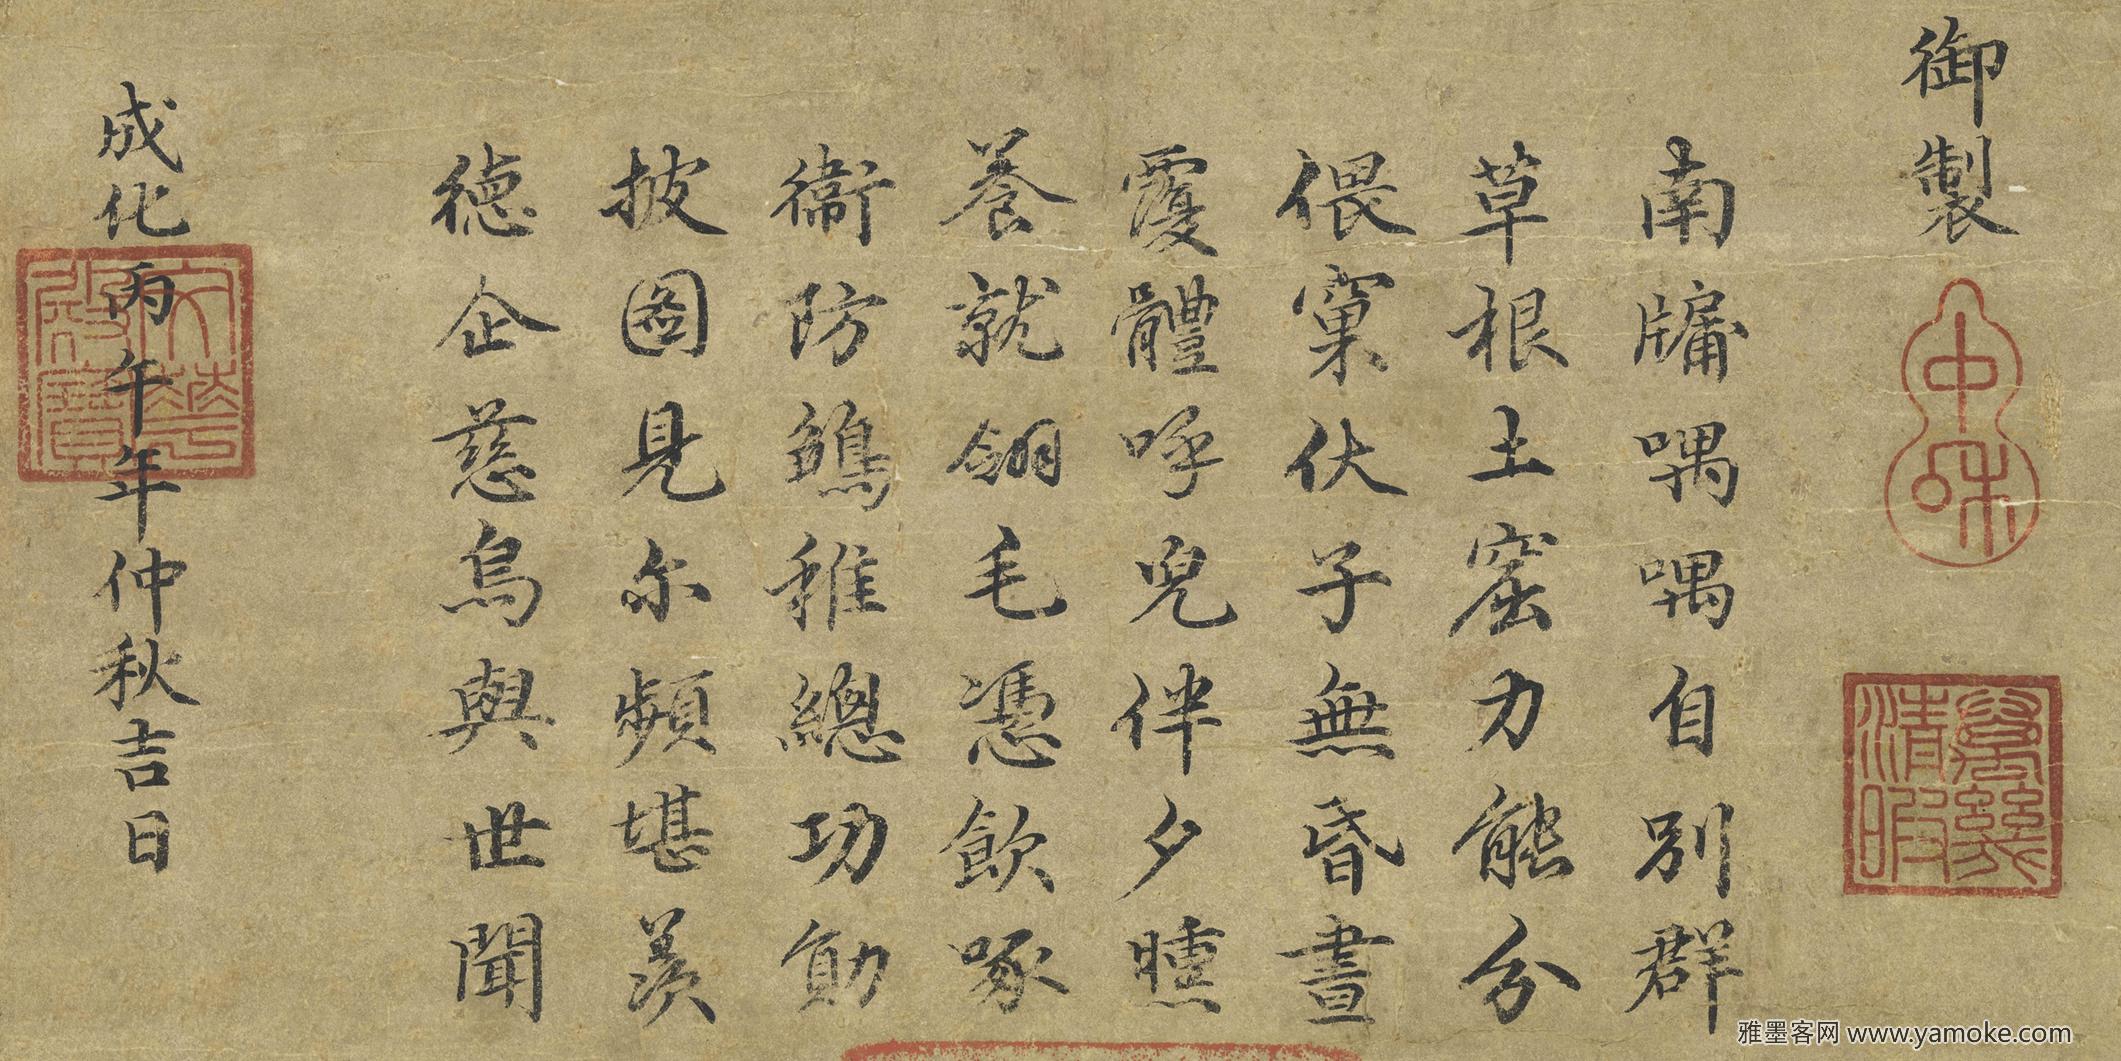 御製
中和
萬幾清暇
南牗喁喁自別群
草根土窟力能分
偎窠伏子無昏晝
覆體呼兒伴夕曛
養就翎毛憑飲啄
衞防鶵稚總功勛
披圖見尔頻堪羡
德企慈烏與世聞
成化丙午年仲秋吉日
雅墨客网 www.yamoke.com